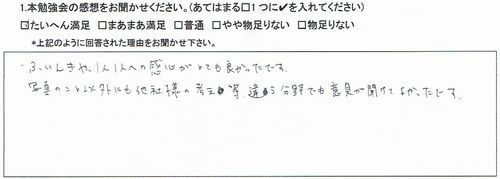 1.本勉強会の感想をお聞かせください。(あてはまる□1つに✔を入れてください)
☑たいへん満足 □まあまあ満足 □普通 □やや物足りない □物足りない
*上記のように回答された理由をお聞かせ下さい。
・ふいんきや、1人1人への感心がとても良かったです。
写真のこと以外にも他社様の考え等、違う分野でも意見が聞けてよかったです。